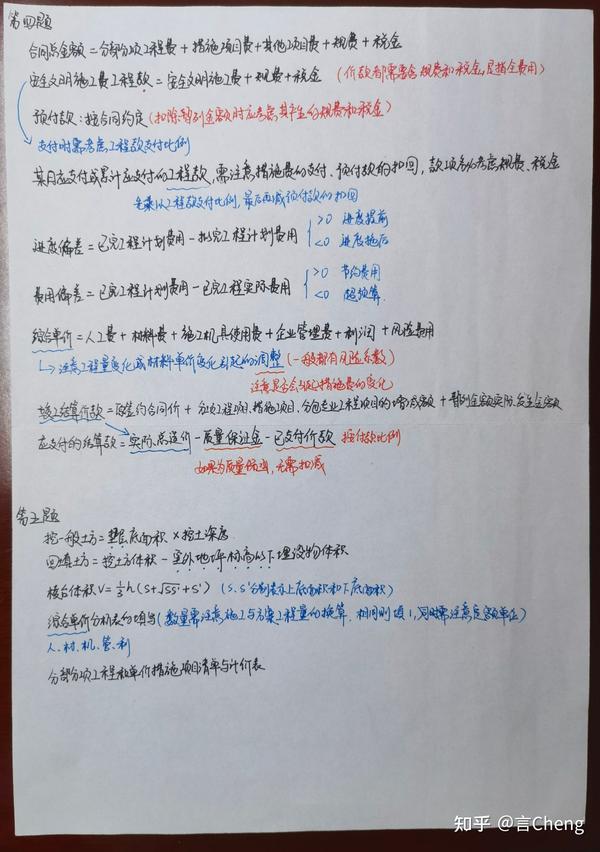 第四题
合同总金额=分部分项工程费+措施项目费+其他项目费+规费+税金
安全文明施工费工程款=安全文明施工费+规费+税金 (价款都需要含规费和税金,是指全费用)
预付款:按合同约定(扣除暂列金额时应考虑其产生的规费和税金)
支付时需考虑工程款支付比例
某月应支付或累计应支付的工程款,需注意措施费的支付、预付款的扣回,款项务必考虑规费、税金
先乘以工程款支付比例,最后再减预付款的扣回
进度偏差=已完工程计划费用-拟完工程计划费用 >0 进度提前
<0 进度拖后
费用偏差=已完工程计划费用-已完工程实际费用 >0 节约费用
<0 超预算
综合单价=人工费+材料费+施工机具使用费+企业管理费+利润+风险费用
注意工程量变化或材料单价变化引起的调整(一般都有风险系数)
注意是否会引起措施费的变化
竣工结算价款=原签约合同价+分项工程项目、措施项目、分包专业工程项目的增减额+暂列金额实际发生金额
应支付的结算款=实际总造价-质量保证金-已支付价款 按付款比例
如果为质量保函,无需扣减
第五题
挖一般土方=垫层底面积×挖土深度
回填土方=挖土方体积-室外地坪标高以下埋设物体积
棱台体积V=⅓h(S+√SS'+S') (S、S'分别表示上底面积和下底面积)
综合单价分析表的填写(数量需注意施工与方案工程量的换算,相同则填1,同时需注意定额单位)
人、材、机、管、利
分部分项工程和单价措施项目清单与计价表
知乎 @言Cheng